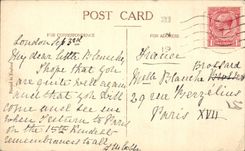 POST CARD
FOR CORRESPONDENCE
FOR ADDRESS
London Sep 23rd
My dear little Blanche
I hope that you
are quite well again
and that you will
come and see me
when I return to Paris
on the 15th Kindest
remembrances to all
France
Melle Blanche Brossard
29 rue Berzélius
Paris XVII